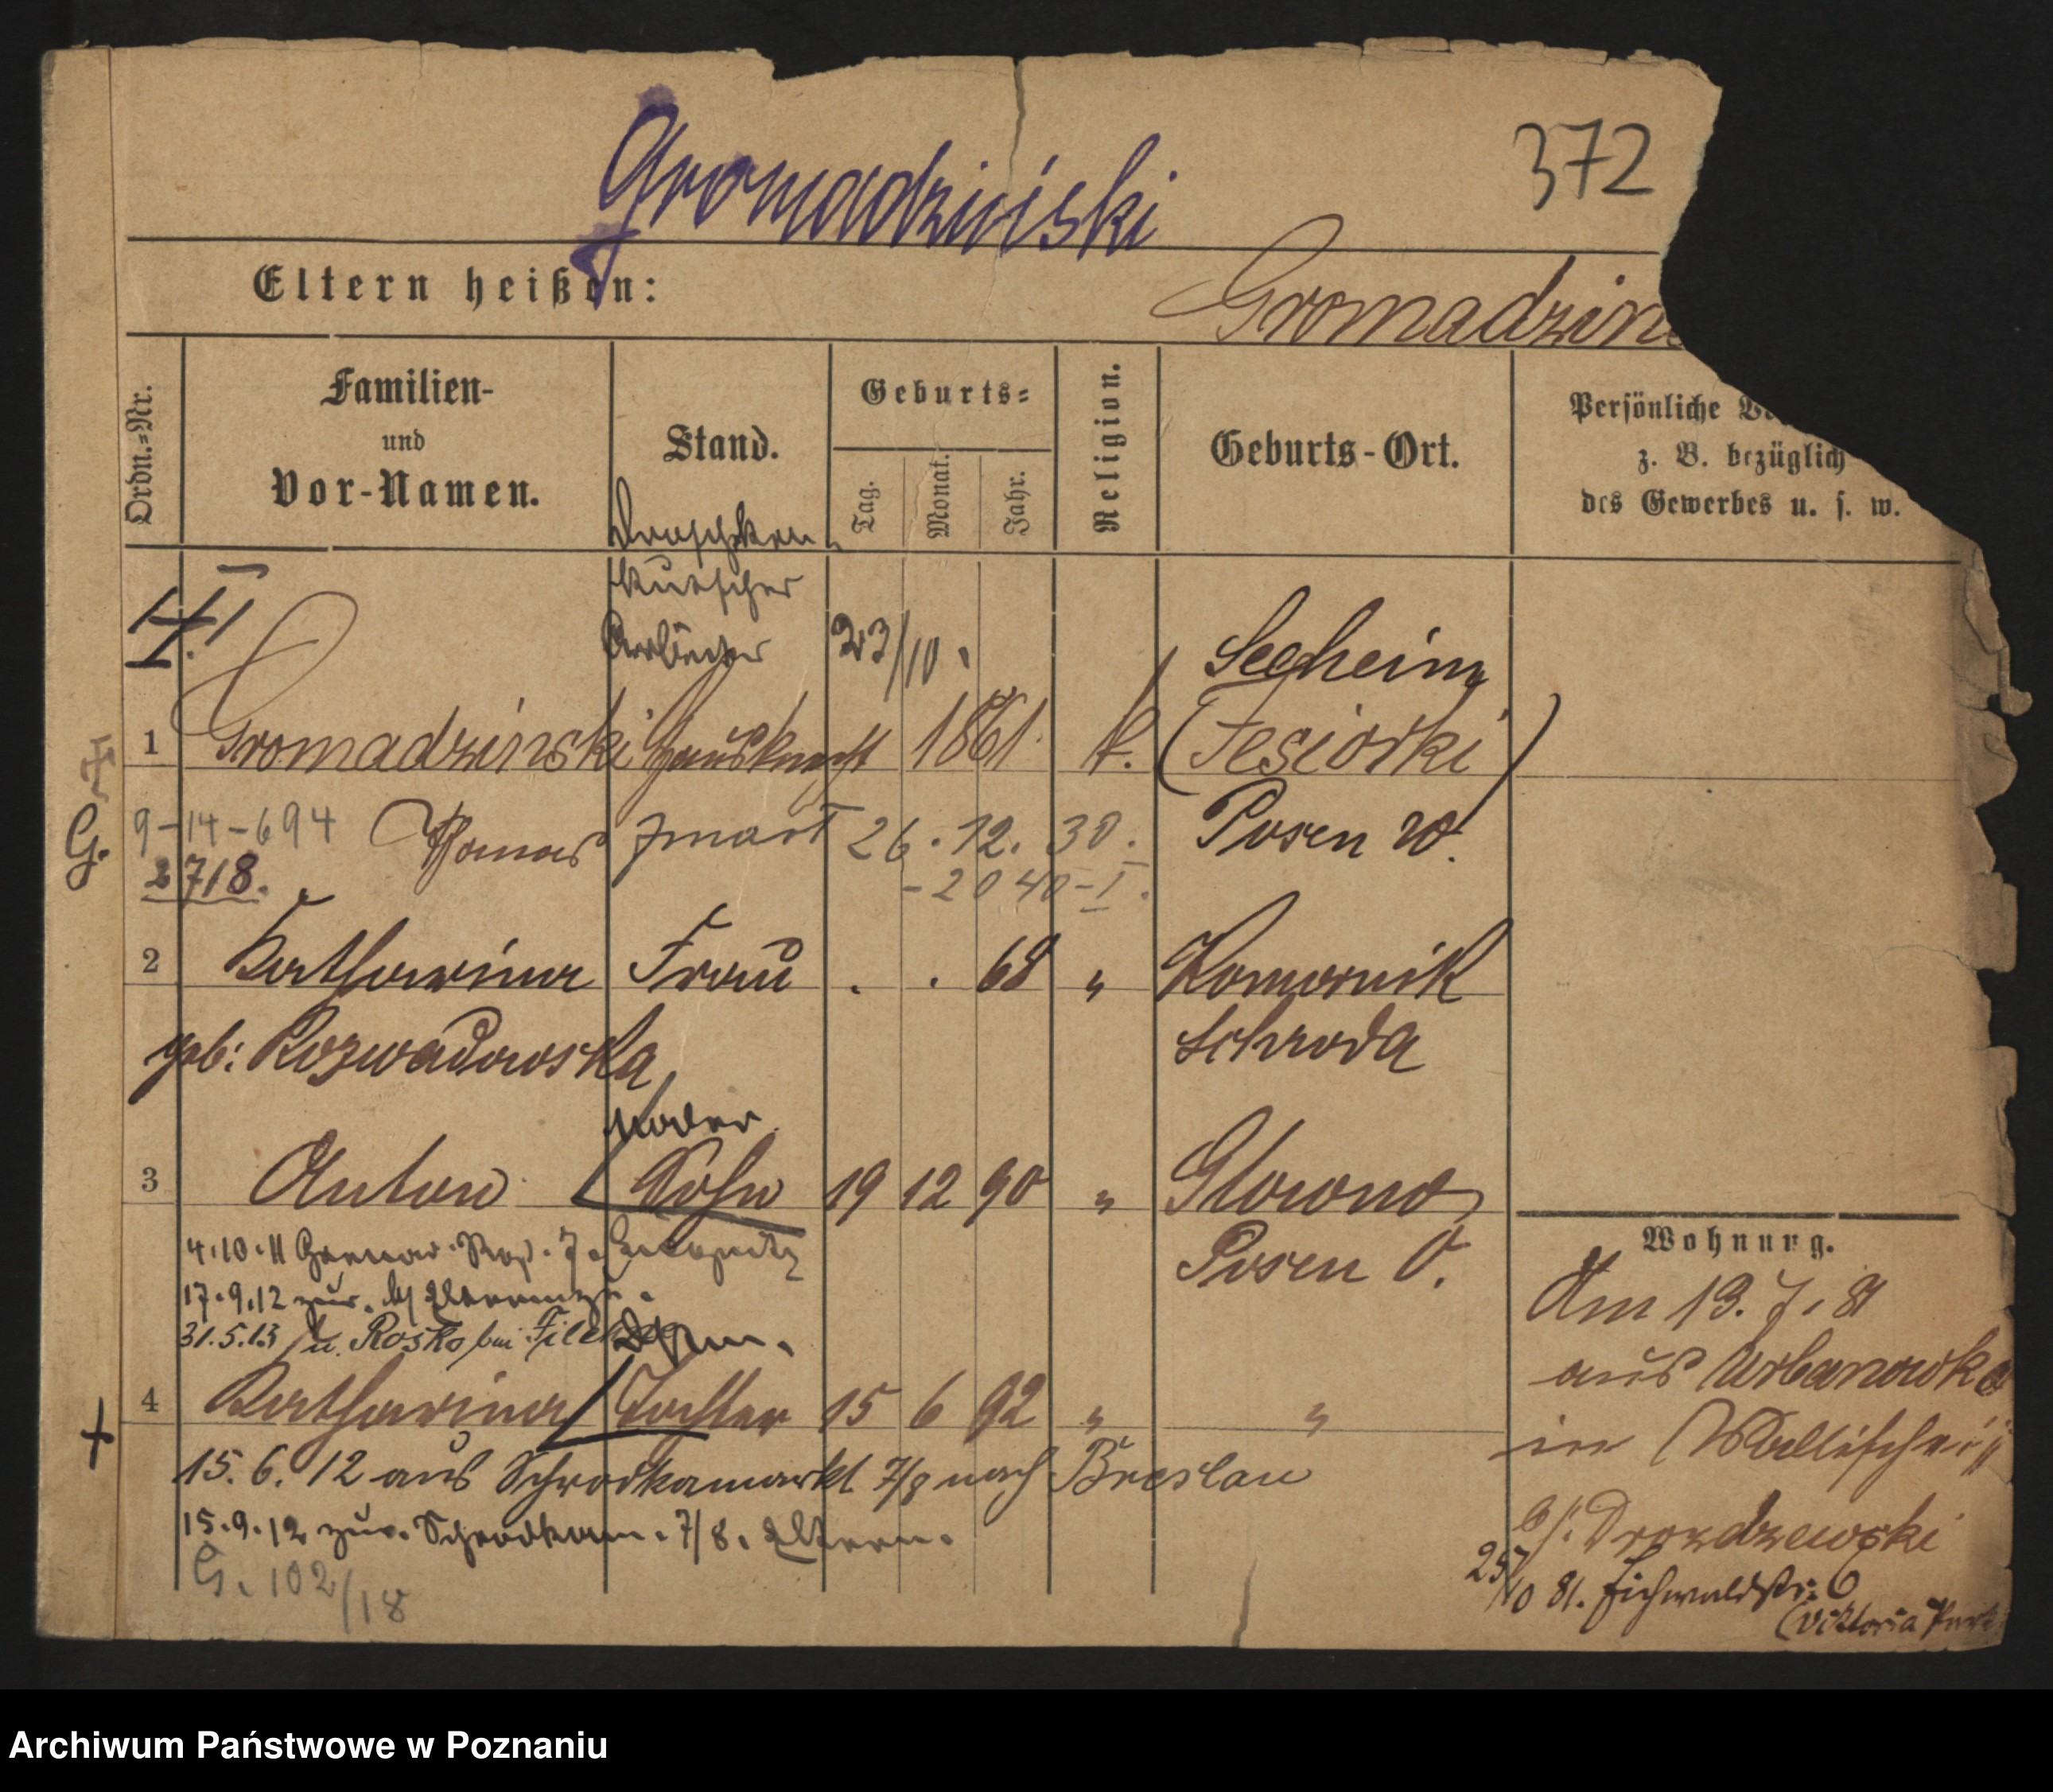 372
Gromadziński
Eltern heißen:
Gromadzins
Ordn.=Nr.
Familien-
und
Vor-Namen.
Stand.
Geburts=
Tag.
Monat.
Jahr.
Religion.
Geburts-Ort.
Persönliche
z. B. bezüglich
des Gewerbes u. s. w.
Droschken
kutscher
Arbeiter
23/10.
Seeheim
1 Gromadzinski Hausknecht 1861. k. (Jesiorki)
G. 9-14-694 Thomas zmarł 26.12.30. Posen W.
2718. -2040-I.
2 Katharina Frau . . 68 " Komornik
geb: Rozwadowska Schroda
3 Anton Sohn 19 12 90 " Glowno
Posen O.
4.10.11 Grenad. 7.
17.9.12 zur.
31.5.13 Rosko bei
4 Katharina Tochter 15 6 92 " "
15.6.12 aus Schrodkamarkt 7/8 nach Breslau
15.9.12 zur. Schrodkam. 7/8. Eltern.
G. 102/18
Wohnung.
Am 13.7.81
aus Urbanowko
in Wallischei
b/. Drozdzewski
25/10 81. Eichwaldstr. 6
(Viktoria Park
Archiwum Państwowe w Poznaniu